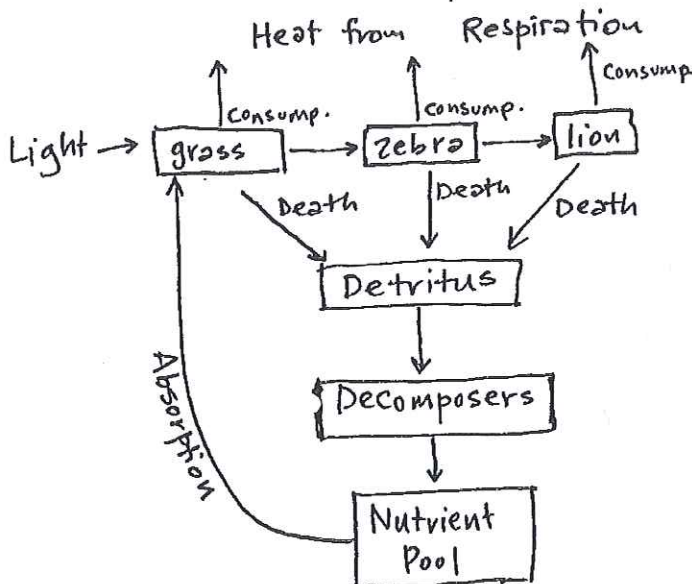 Heat from Respiration
Consump. Consump. Consump.
Light grass zebra lion
Death Death Death
Detritus
Absorption
Decomposers
Nutrient
Pool